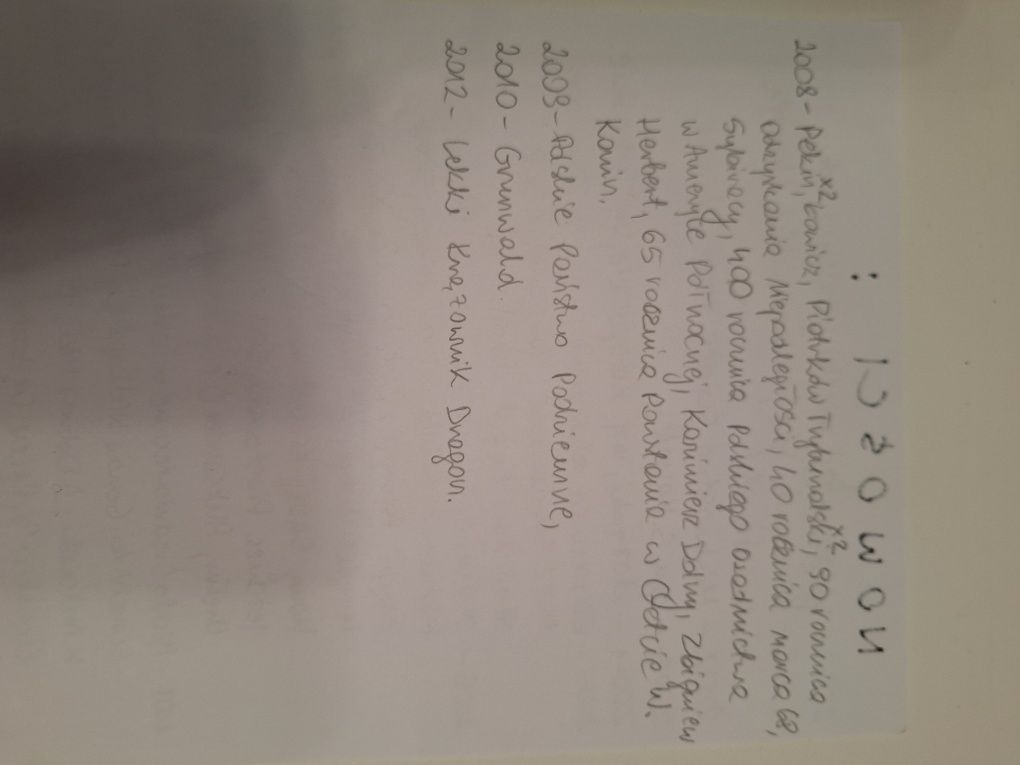 NOWOŚCI :
2008 - Pekin x2, Łowicz, Piotrków Trybunalski x2, 90 rocznica
odzyskania Niepodległości, 40 rocznica marca 68,
Sybiracy, 400 rocznica Polskiego osadnictwa
w Ameryce Północnej, Kazimierz Dolny, Zbigniew
Herbert, 65 rocznica Powstania w Getcie W.
Konin.
2009 - Polskie Państwo Podziemne,
2010 - Grunwald.
2012 - Lekki Krążownik Dragon.